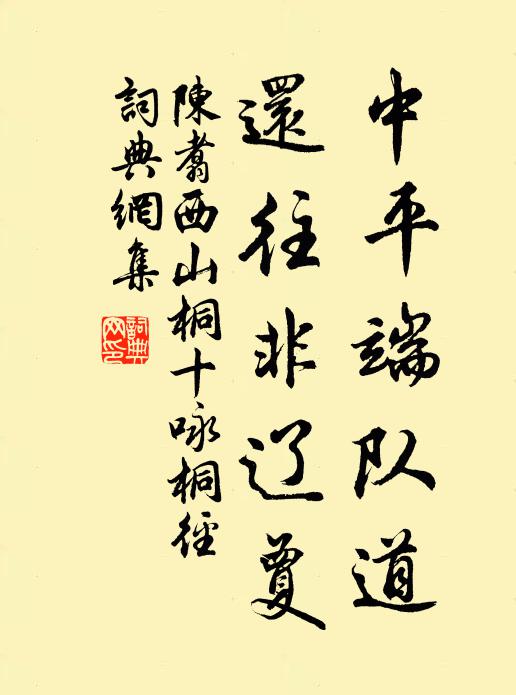 中平端队道
還往非辽夐
陳翥西山桐十咏桐徑
詞典網集
詞典网印